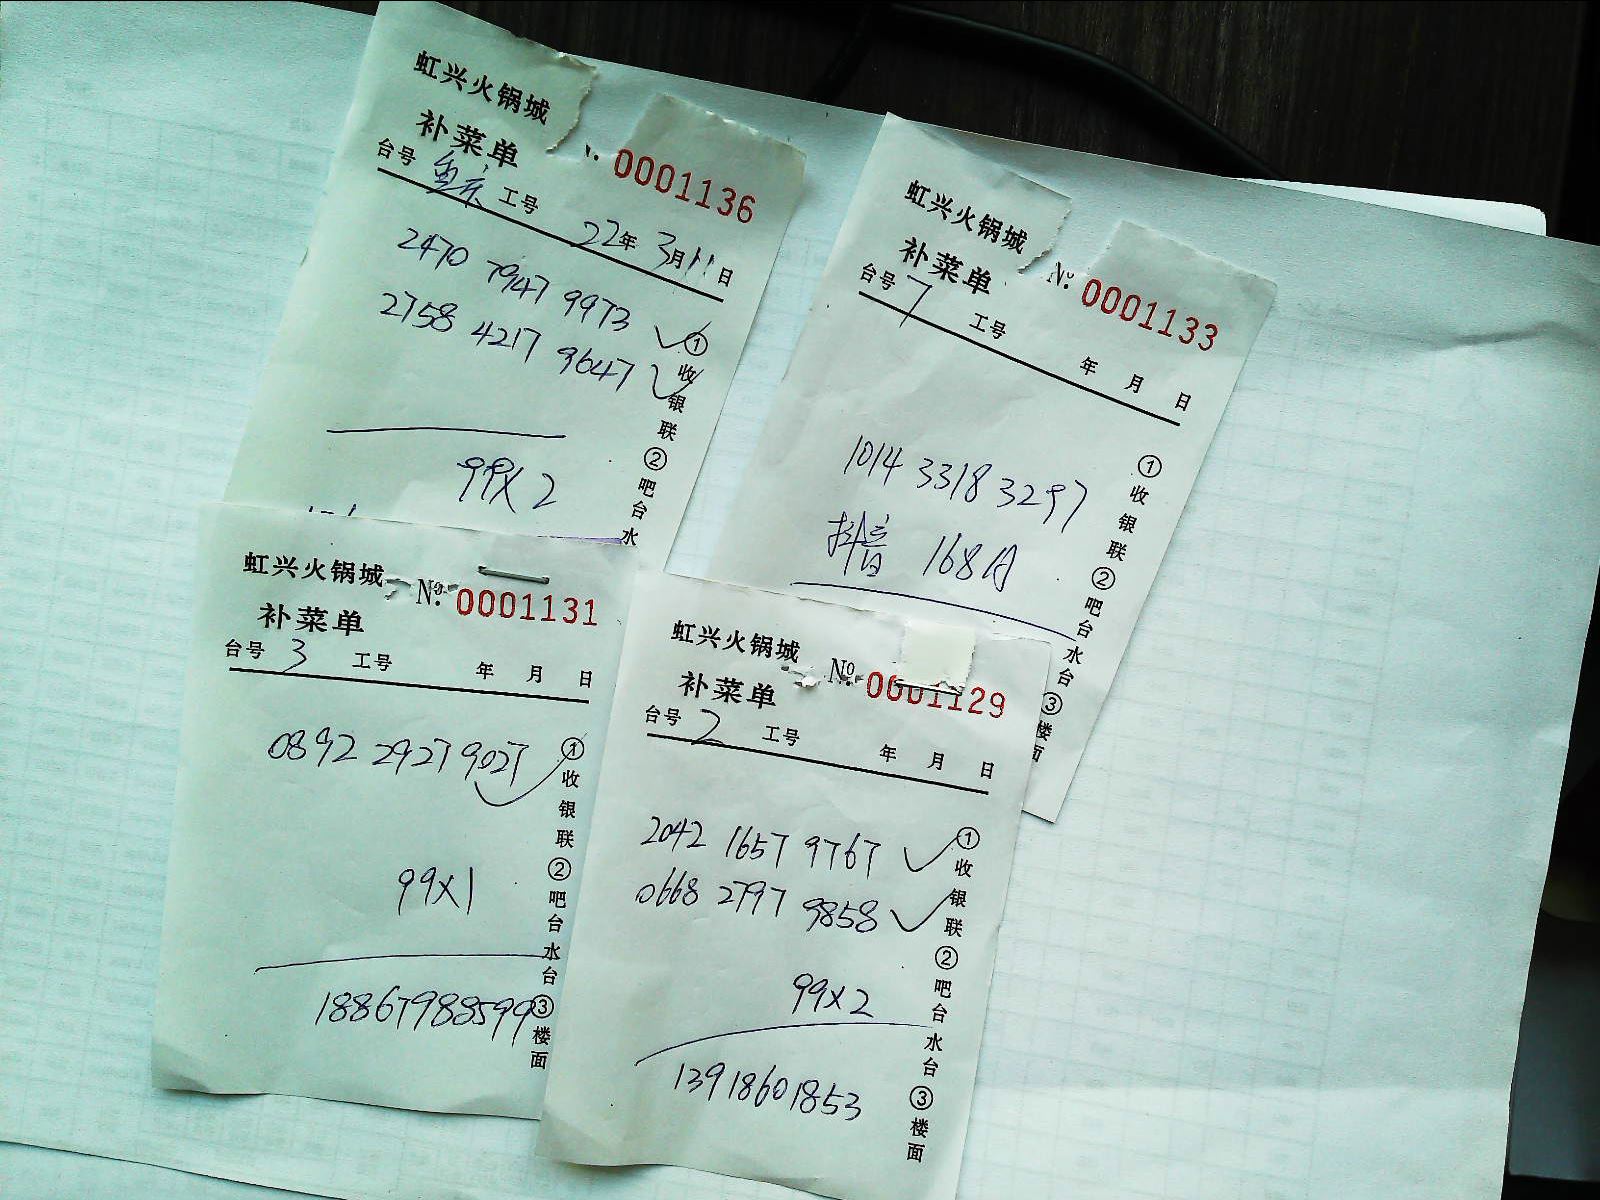 虹兴火锅城
补菜单
0001136
台号 重庆 工号 22年3月11日
2470 7947 9973
2758 4217 9647
99X2
①收银联②吧台水
虹兴火锅城
补菜单
№: 0001133
台号 7 工号 年 月 日
1014 3318 3297
抖音 168
①收银联②吧台水台③楼面
虹兴火锅城
补菜单
№: 0001131
台号 3 工号 年 月 日
0892 2927 9027
99X1
18867988599
①收银联②吧台水台③楼面
虹兴火锅城
补菜单
№: 0001129
台号 2 工号 年 月 日
2042 1657 9767
0668 2797 9858
99X2
13918601853
①收银联②吧台水台③楼面